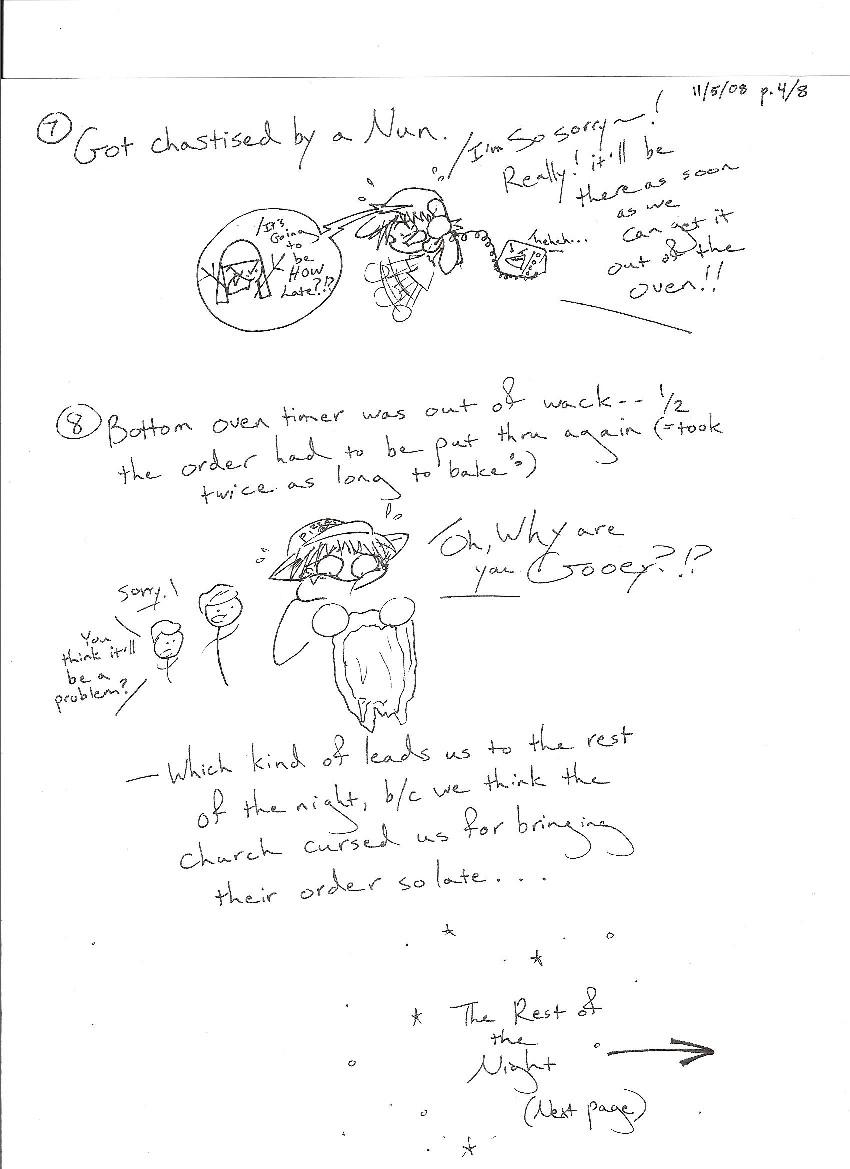 11/5/08 p.4/8
7 Got chastised by a Nun.
I'm So sorry~!
Really! it'll be
there as soon
as we
can get it
out of the
oven!!
It's
Going
to
be
HOW
Late?!?
heheh...
8 Bottom oven timer was out of wack-- 1/2
the order had to be put thru again (=took
twice as long to "bake")
Pizza
Oh, Why are
you Gooey?!?
Sorry!
You
think it'll
be a
problem?
— Which kind of leads us to the rest
of the night, b/c we think the
church cursed us for bringing
their order so late...
The Rest of
the
Night
(Next page)